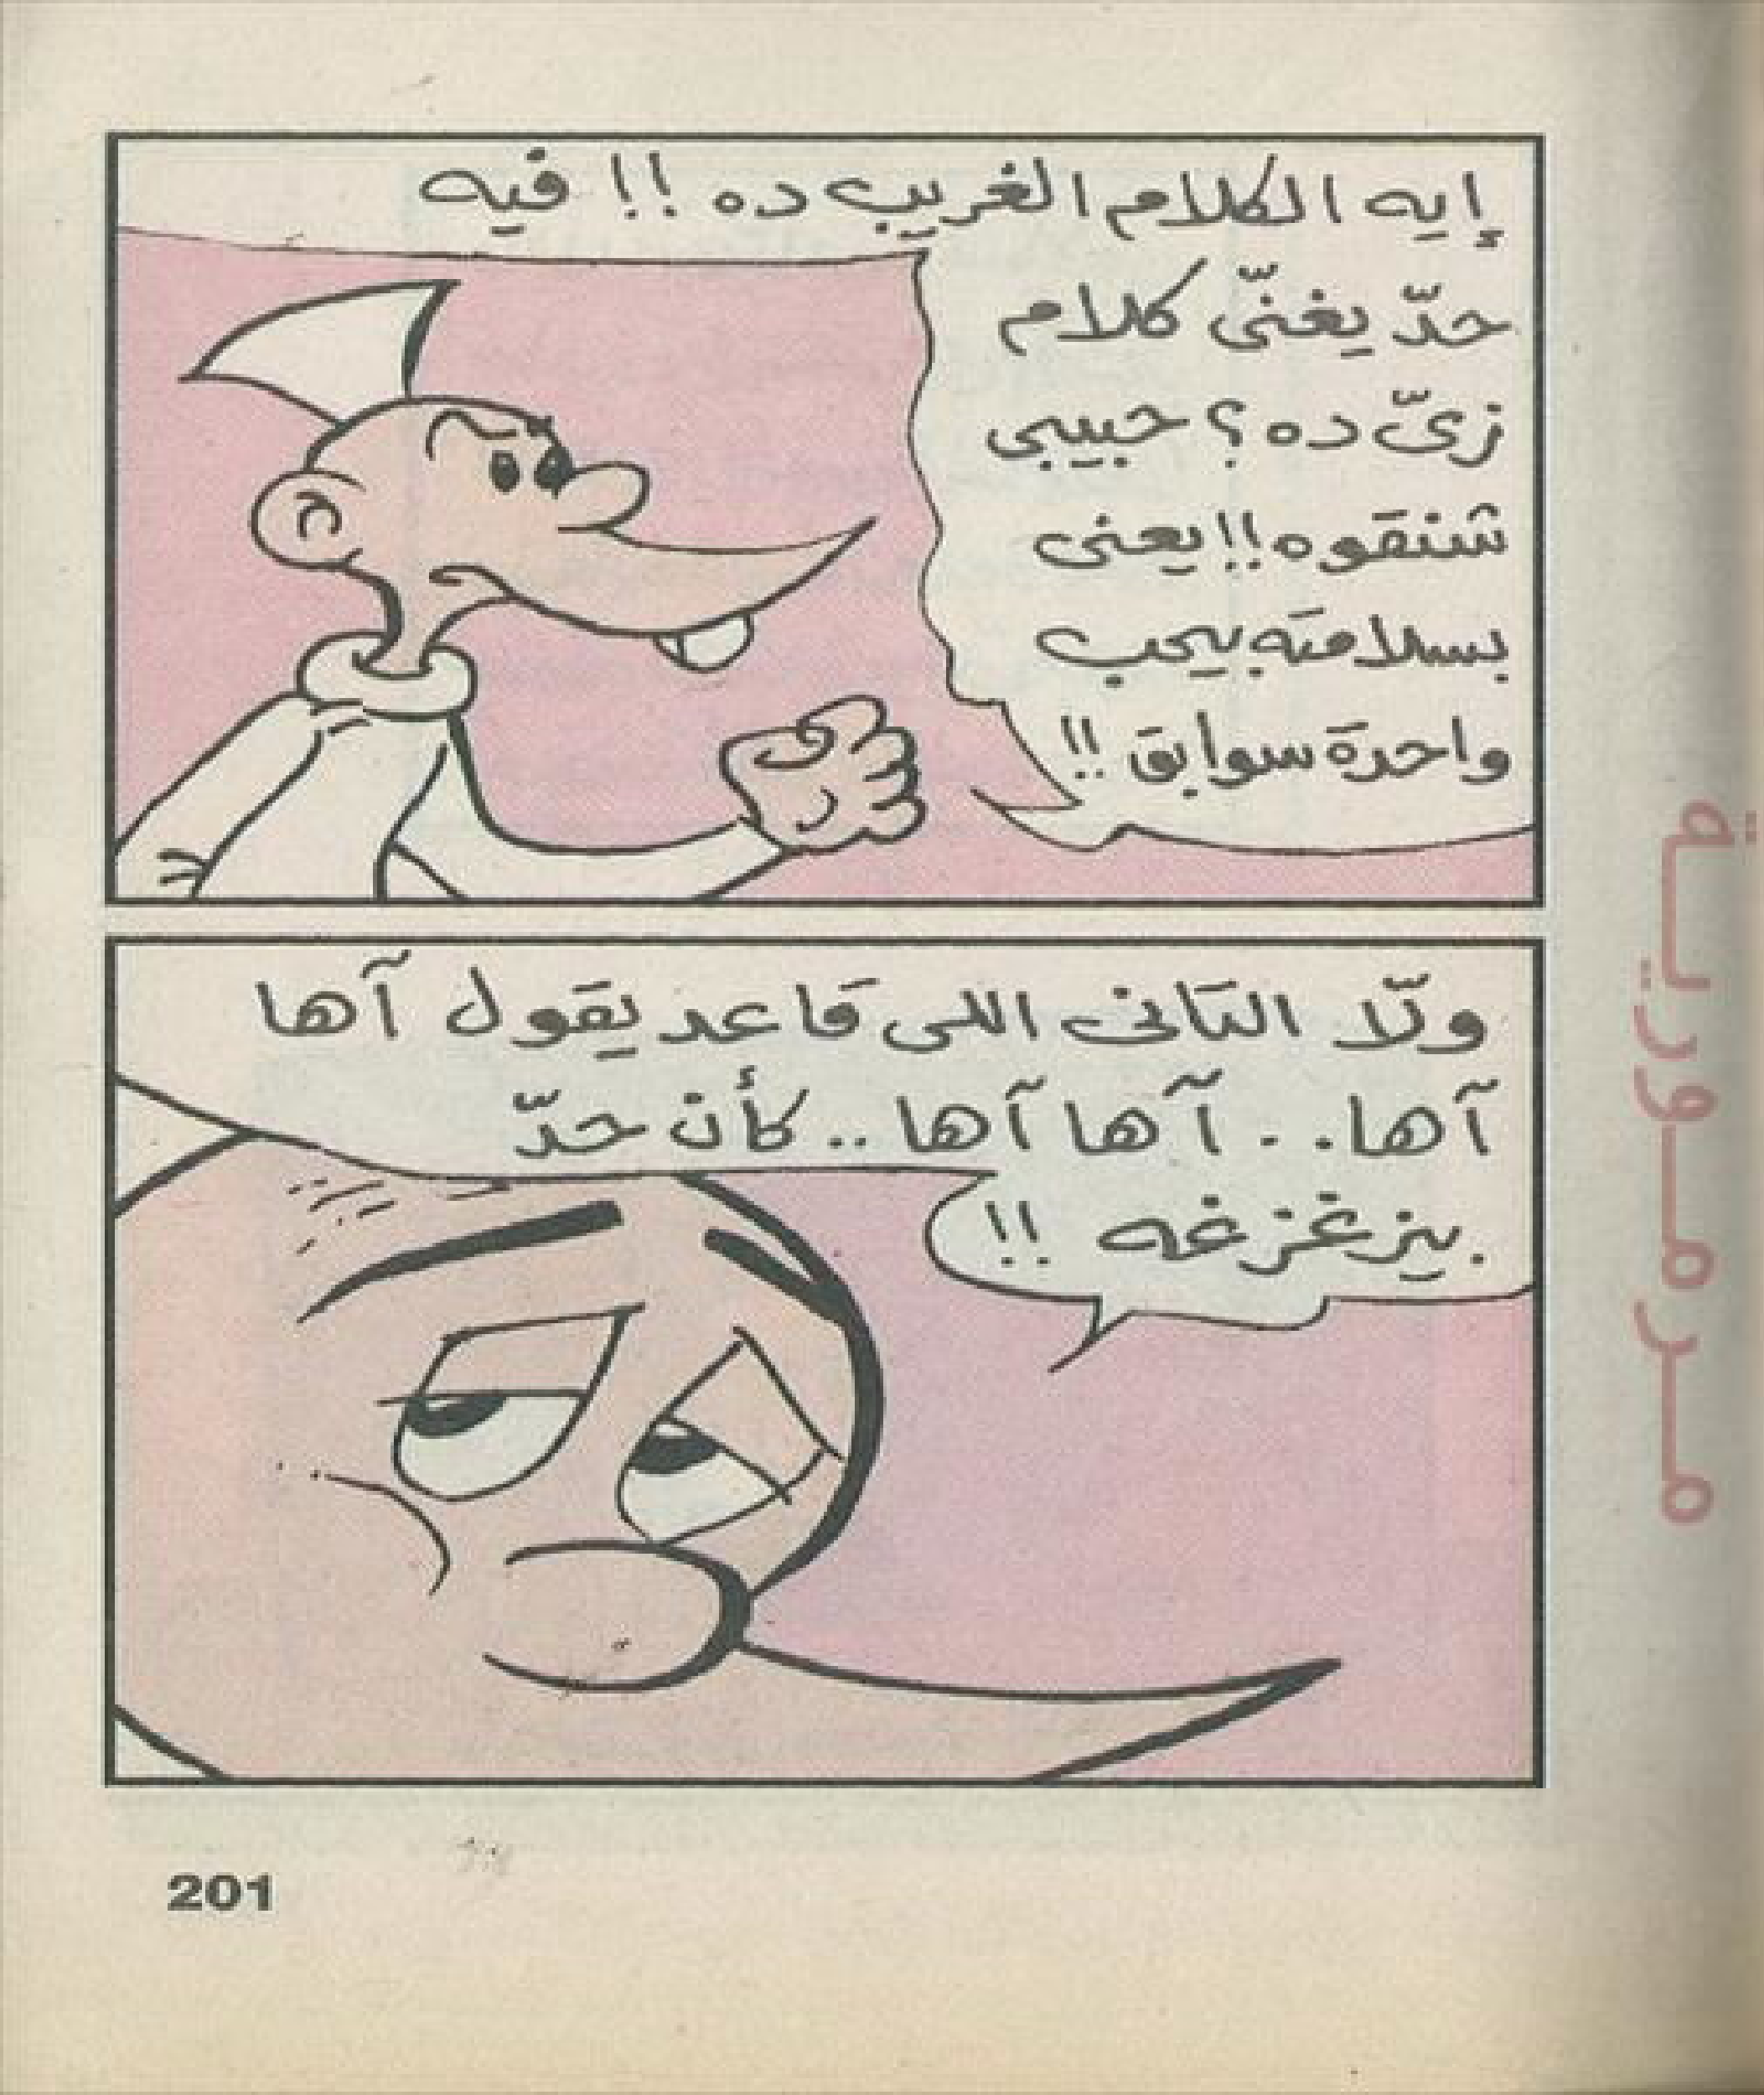 إيه الكلام الغريب ده !! فيه
حدّ يغنّى كلام
زىّ ده ؟ حبيبى
شنقوه !! يعنى
بسلامته بيحب
واحدة سوابق !!
ولّا التانى اللى قاعد يقول آها
آها . . آها آها .. كأن حدّ
بيزغزغه !!
201
مرمورية